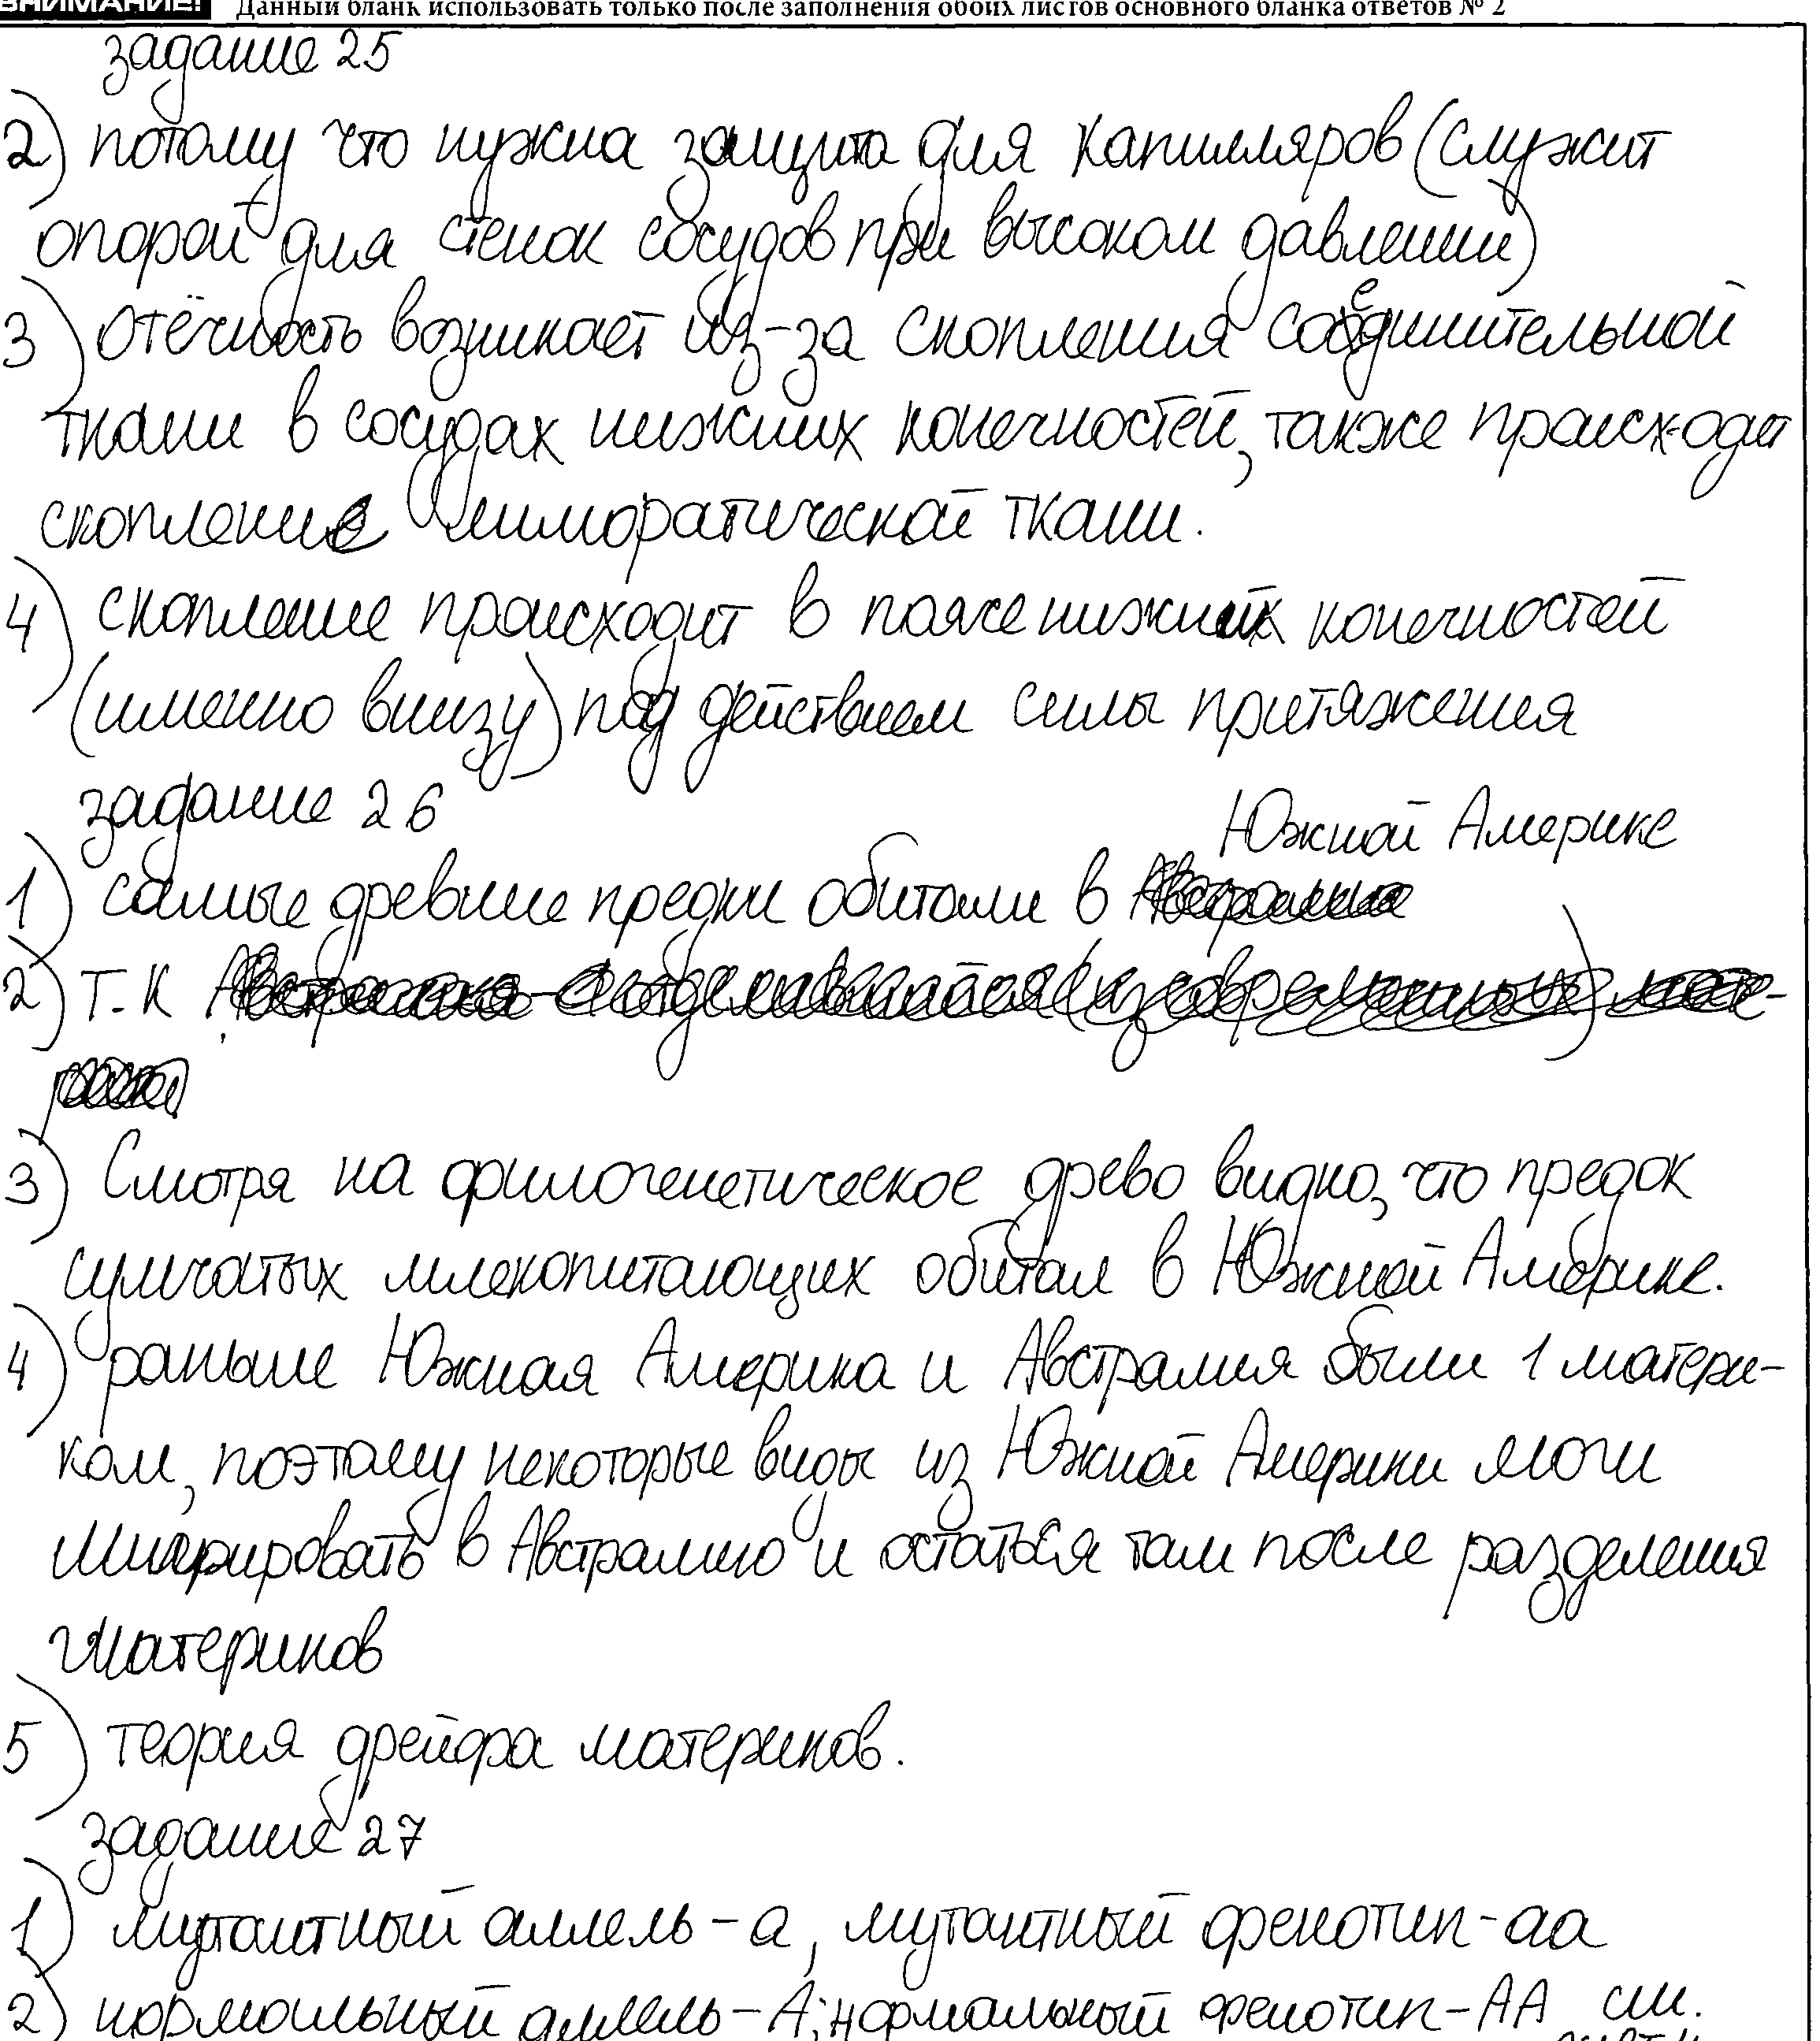 ВНИМАНИЕ! Данный бланк использовать только после заполнения обоих листов основного бланка ответов № 2
задание 25
2) потому что нужна защита для капилляров (служит
опорой для стенок сосудов при высоком давлении)
3) отёчность возникает из-за скопления соединительной
ткани в сосудах нижних конечностей, также происходит
скопление лимфатической ткани.
4) скопление происходит в поясе нижних конечностей
(именно внизу) под действием силы притяжения
задание 26
1) самые древние предки обитали в Южной Америке
2) т.к
3) Смотря на филогенетическое древо видно, что предок
сумчатых млекопитающих обитал в Южной Америке.
4) раньше Южная Америка и Австралия были 1 матери-
ком, поэтому некоторые виды из Южной Америки могли
мигрировать в Австралию и остаться там после разделения
материков
5) теория дрейфа материков.
задание 27
1) мутантный аллель - а, мутантный фенотип - аа
2) нормальный аллель - А; нормальный фенотип - АА см.